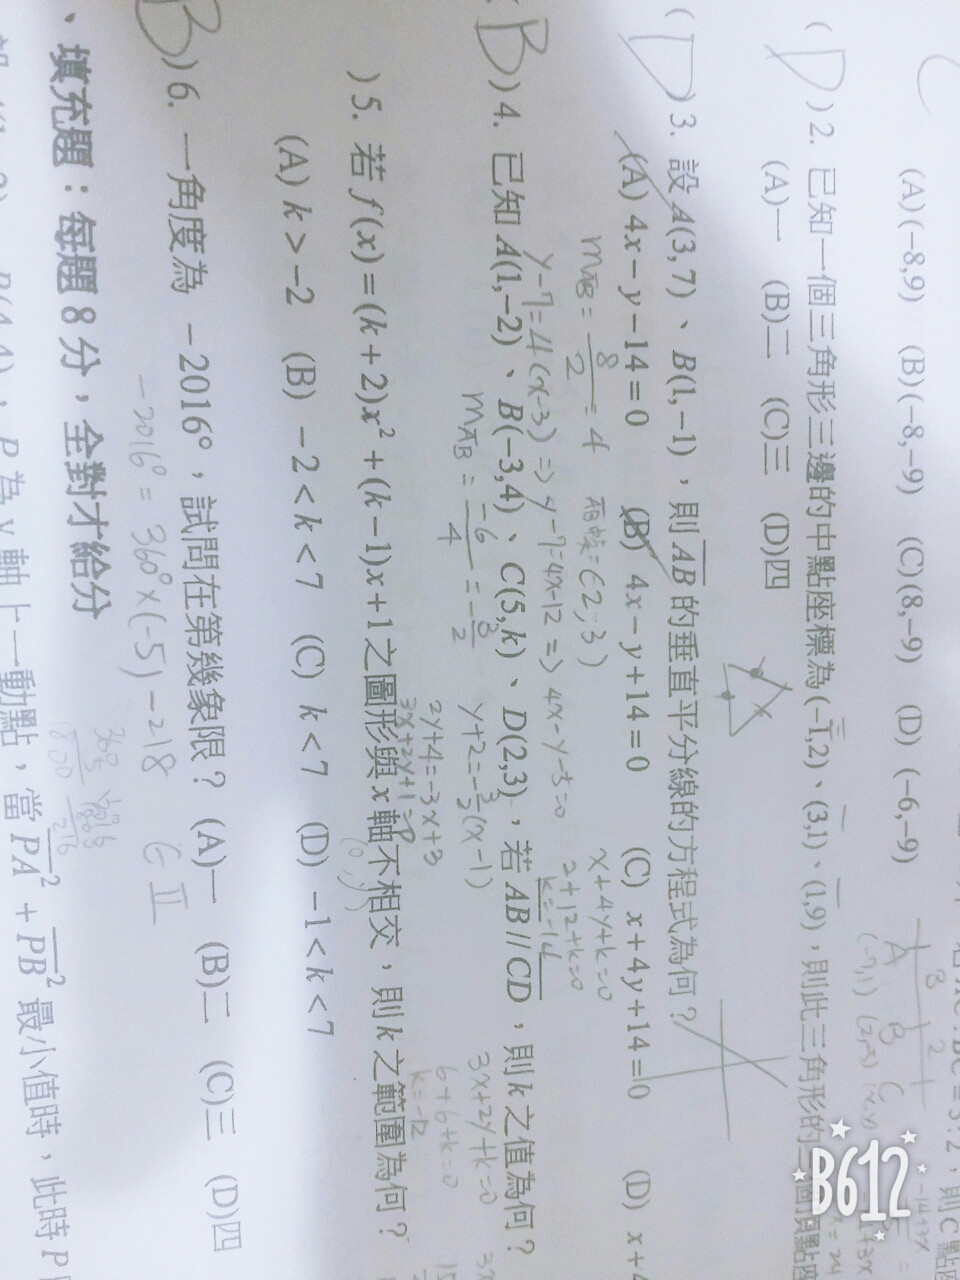 (A)(−8,9) (B)(−8,−9) (C)(8,−9) (D) (−6,−9)
(D)2. 已知一個三角形三邊的中點座標為(−1,2)、(3,1)、(1,9)，則此三角形的三個頂點
(A)一 (B)二 (C)三 (D)四
(D)3. 設A(3,7)、B(1,−1)，則AB的垂直平分線的方程式為何？
(A) 4x−y−14=0 (B) 4x−y+14=0 (C) x+4y+14=0 (D) x+4
mAB = 8/2 = 4 中點=(2,3) x+4y+k=0
2+12+k=0
k=−14
y−7=4(x−3) ⇒ y−7=4x−12 ⇒ 4x−y−5=0
(B)4. 已知A(1,−2)、B(−3,4)、C(5,k)、D(2,3)，若AB//CD，則k之值為何？
mAB = −6/4 = −3/2 y+2=−3/2(x−1) 3x+2y+k=0
2y+4=−3x+3 6+6+k=0
3x+2y+1=0 k=−12
)5. 若f(x)=(k+2)x²+(k−1)x+1之圖形與x軸不相交，則k之範圍為何？
(A) k>−2 (B) −2<k<7 (C) k<7 (D) −1<k<7
(B)6. 一角度為 −2016°，試問在第幾象限？ (A)一 (B)二 (C)三 (D)四
−2016° = 360°×(−5)−218 ∈ II
、填充題：每題8分，全對才給分
P為y軸上一動點，當PA²+PB²最小值時，此時P
B612